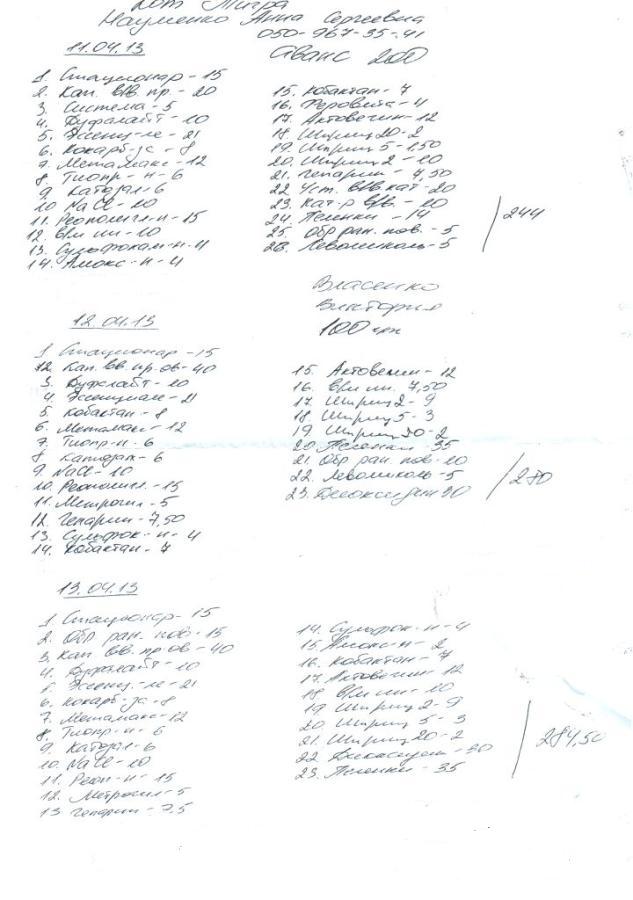 Кот Тигра
Науменко Анна Сергеевна
050-967-35-41
11.04.13
Аванс 200
1. Стационар - 15
2. Кап. в/в. пр. - 20
3. Система - 5
4. Буфалайт - 10
5. Эссенц-ле - 21
6. Кокарб-за - 8
7. Метамакс - 12
8. Тиопр-н - 6
9. Катозал - 6
10. NaCl - 10
11. Реополигл-н - 15
12. в/м ин - 10
13. Сульфокам-н - 4
14. Амокс-н - 4
15. Кобактан - 7
16. Феровита - 4
17. Актовегин - 12
18. Шприц 20 - 2
19. Шприц 5 - 1,50
20. Шприц 2 - 10
21. Гепарин - 4,50
22. Уст. в/в. кат - 20
23. Кат-р в/в. - 10
24. Пеленки - 14
25. Обр ран. пов. - 5
26. Левомиколь - 5
244
Власенко
Виктория
100 грн
12.04.13
1. Стационар - 15
12. Кап. вв. пр. ов - 40
3. Буфалайт - 10
4. Эссенциале - 21
5. Кобактан - 8
6. Метамакс - 12
7. Тиопр-н - 6
8. Катозал - 6
9. NaCl - 10
10. Реополигл. - 15
11. Метрогил - 5
12. Гепарин - 7,50
13. Сульфок-н - 4
14. Кобактан - 7
15. Актовегин - 12
16. в/м ин. 7,50
17. Шприц 2 - 9
18. Шприц 5 - 3
19. Шприц 20 - 2
20. Пеленки 35
21. Обр ран. пов - 10
22. Левомиколь - 5
23. Диоксидин 30
280
13.04.13
1. Стационар - 15
2. Обр ран. пов. - 15
3. Кап вв. пр. ов - 40
4. Буфалайт - 10
5. Эссенц. - ле - 21
6. Кокарб-за - 8
7. Метамакс - 12
8. Тиопр-н - 6
9. Катозал - 6
10. NaCl - 10
11. Реоп-н - 15
12. Метрогил - 5
13. Гепарин - 7.5
14. Сульфок-н - 4
15. Амокс-н - 2
16. Кобактан - 7
17. Актовегин 12
18. в/м ин - 10
19. Шприц 2 - 9
20. Шприц 5 - 3
21. Шприц 20 - 2
22. Диоксидин - 30
23. Пеленки - 35
284,50